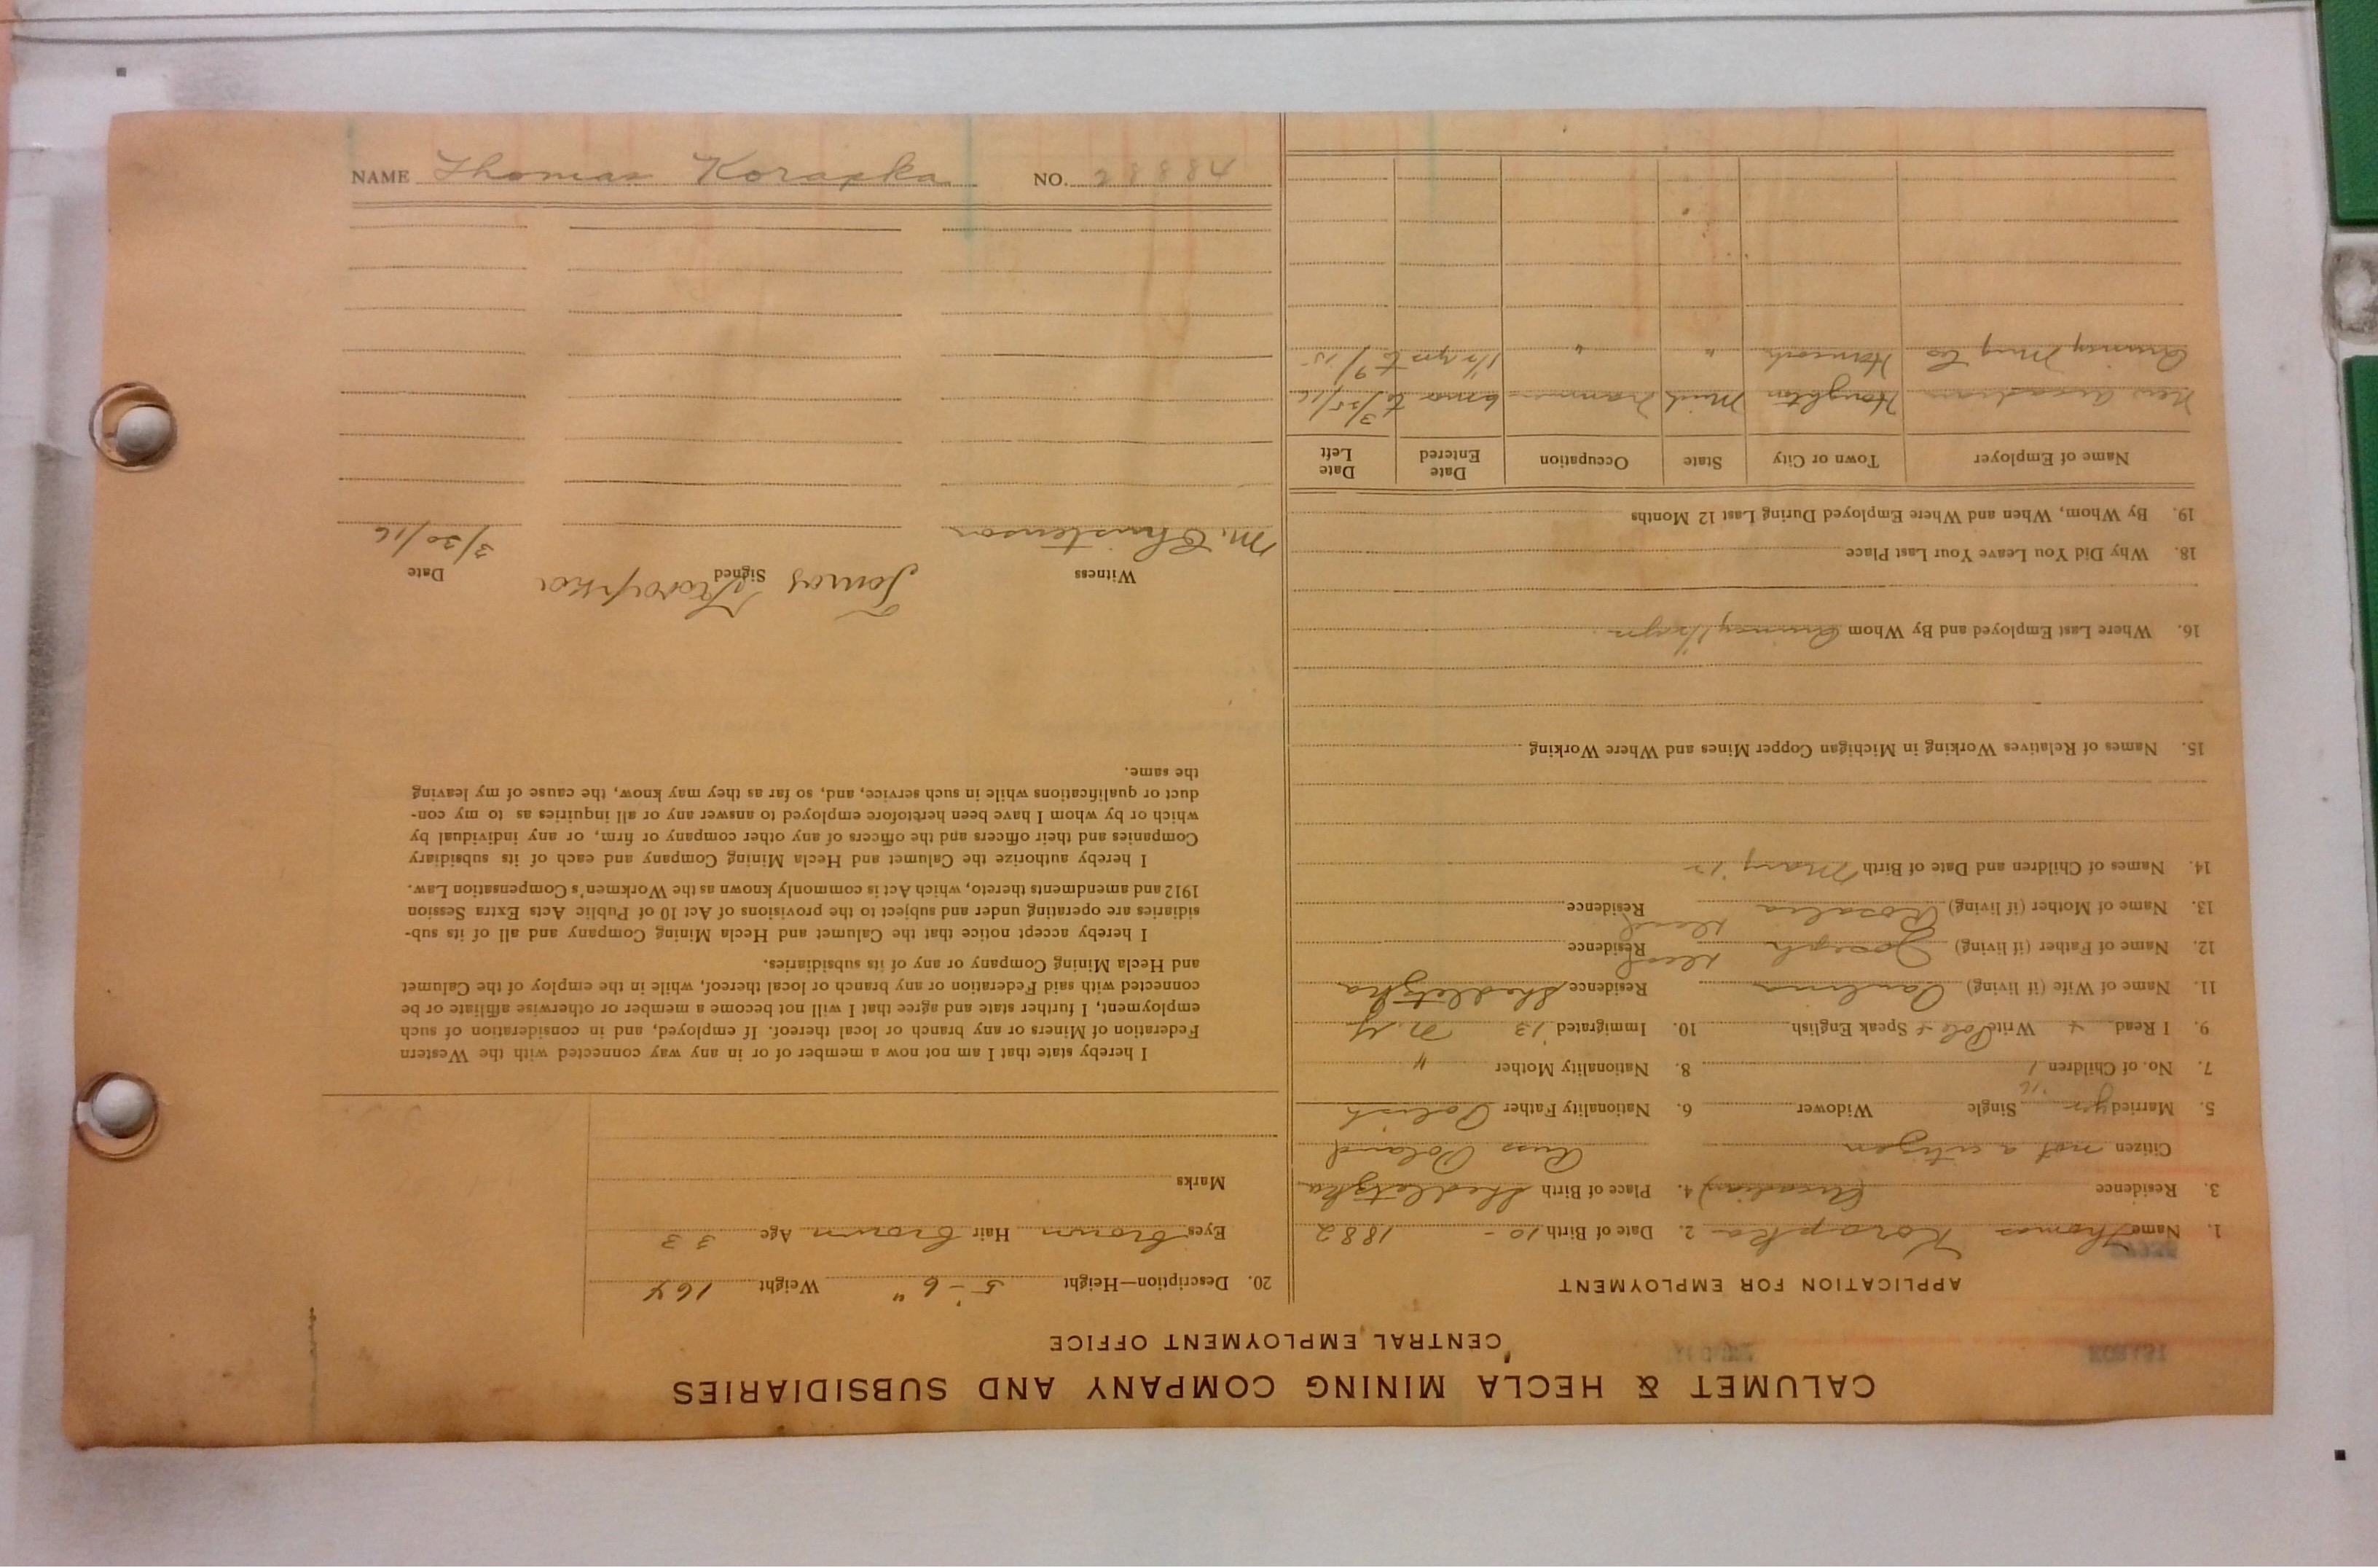 CALUMET & HECLA MINING COMPANY AND SUBSIDIARIES
CENTRAL EMPLOYMENT OFFICE
APPLICATION FOR EMPLOYMENT
1. Name Thomas Korapka 2. Date of Birth 10 - 1882
3. Residence (Arcadian) 4. Place of Birth Shedletzka
Citizen not a citizen Russ Poland
5. Married yes Single Widower 6. Nationality Father Polish
7. No. of Children 1 8. Nationality Mother "
9. I Read + Write Pole + Speak English. 10. Immigrated '13 N Y
11. Name of Wife (if living) Paulina Residence Shedletzka
12. Name of Father (if living) Joseph dead Residence
13. Name of Mother (if living) Rosalia dead Residence
14. Names of Children and Date of Birth Mary '12
15. Names of Relatives Working in Michigan Copper Mines and Where Working
16. Where Last Employed and By Whom Quincy 1½ yrs
18. Why Did You Leave Your Last Place
19. By Whom, When and Where Employed During Last 12 Months
Name of Employer Town or City State Occupation Date Entered Date Left
New Arcadian Houghton Mich Trammer 6 mo to 3/25/16
Quincy Mng Co Hancock " " 1½ yrs to 9/15
20. Description—Height 5'-6" Weight 164
Eyes brown Hair brown Age 33
Marks
I hereby state that I am not now a member of or in any way connected with the Western
Federation of Miners or any branch or local thereof. If employed, and in consideration of such
employment, I further state and agree that I will not become a member or otherwise affiliate or be
connected with said Federation or any branch or local thereof, while in the employ of the Calumet
and Hecla Mining Company or any of its subsidiaries.
I hereby accept notice that the Calumet and Hecla Mining Company and all of its sub-
sidiaries are operating under and subject to the provisions of Act 10 of Public Acts Extra Session
1912 and amendments thereto, which Act is commonly known as the Workmen's Compensation Law.
I hereby authorize the Calumet and Hecla Mining Company and each of its subsidiary
Companies and their officers and the officers of any other company or firm, or any individual by
which or by whom I have been heretofore employed to answer any or all inquiries as to my con-
duct or qualifications while in such service, and, so far as they may know, the cause of my leaving
the same.
Witness Signed Date
M. Christenson Tomas Korapka 3/30/16
NAME Thomas Korapka NO. 28884